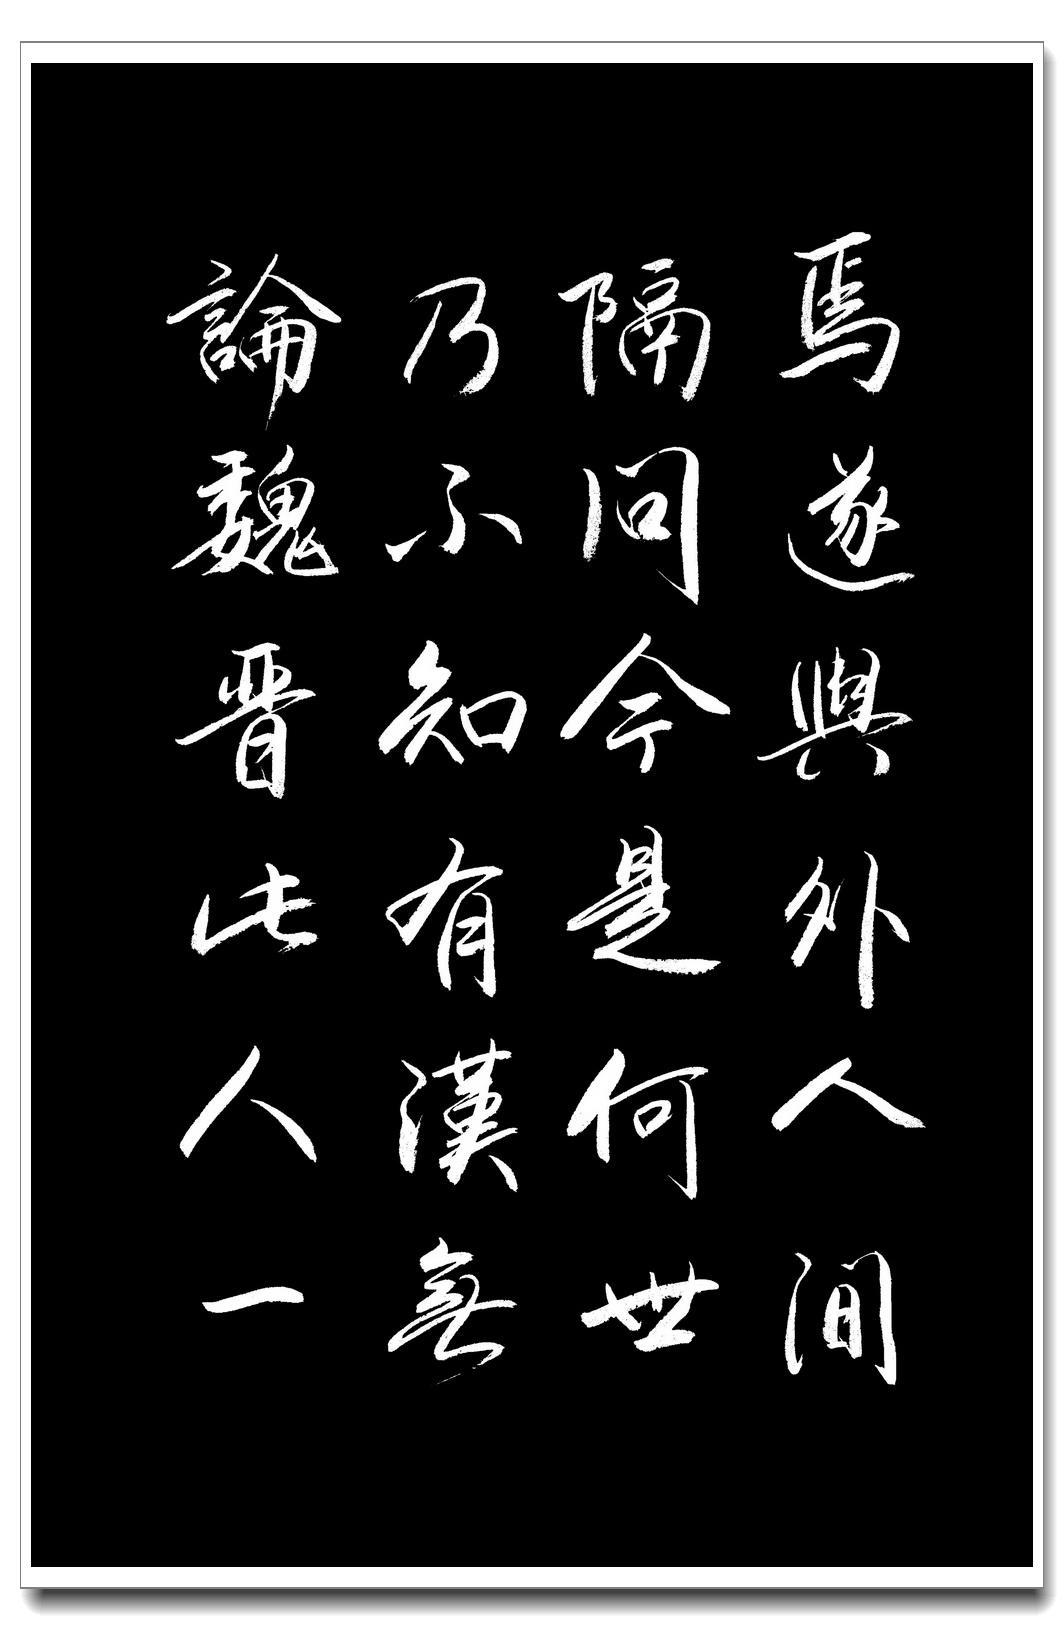 焉遂與外人間
隔問今是何世
乃不知有漢無
論魏晉此人一